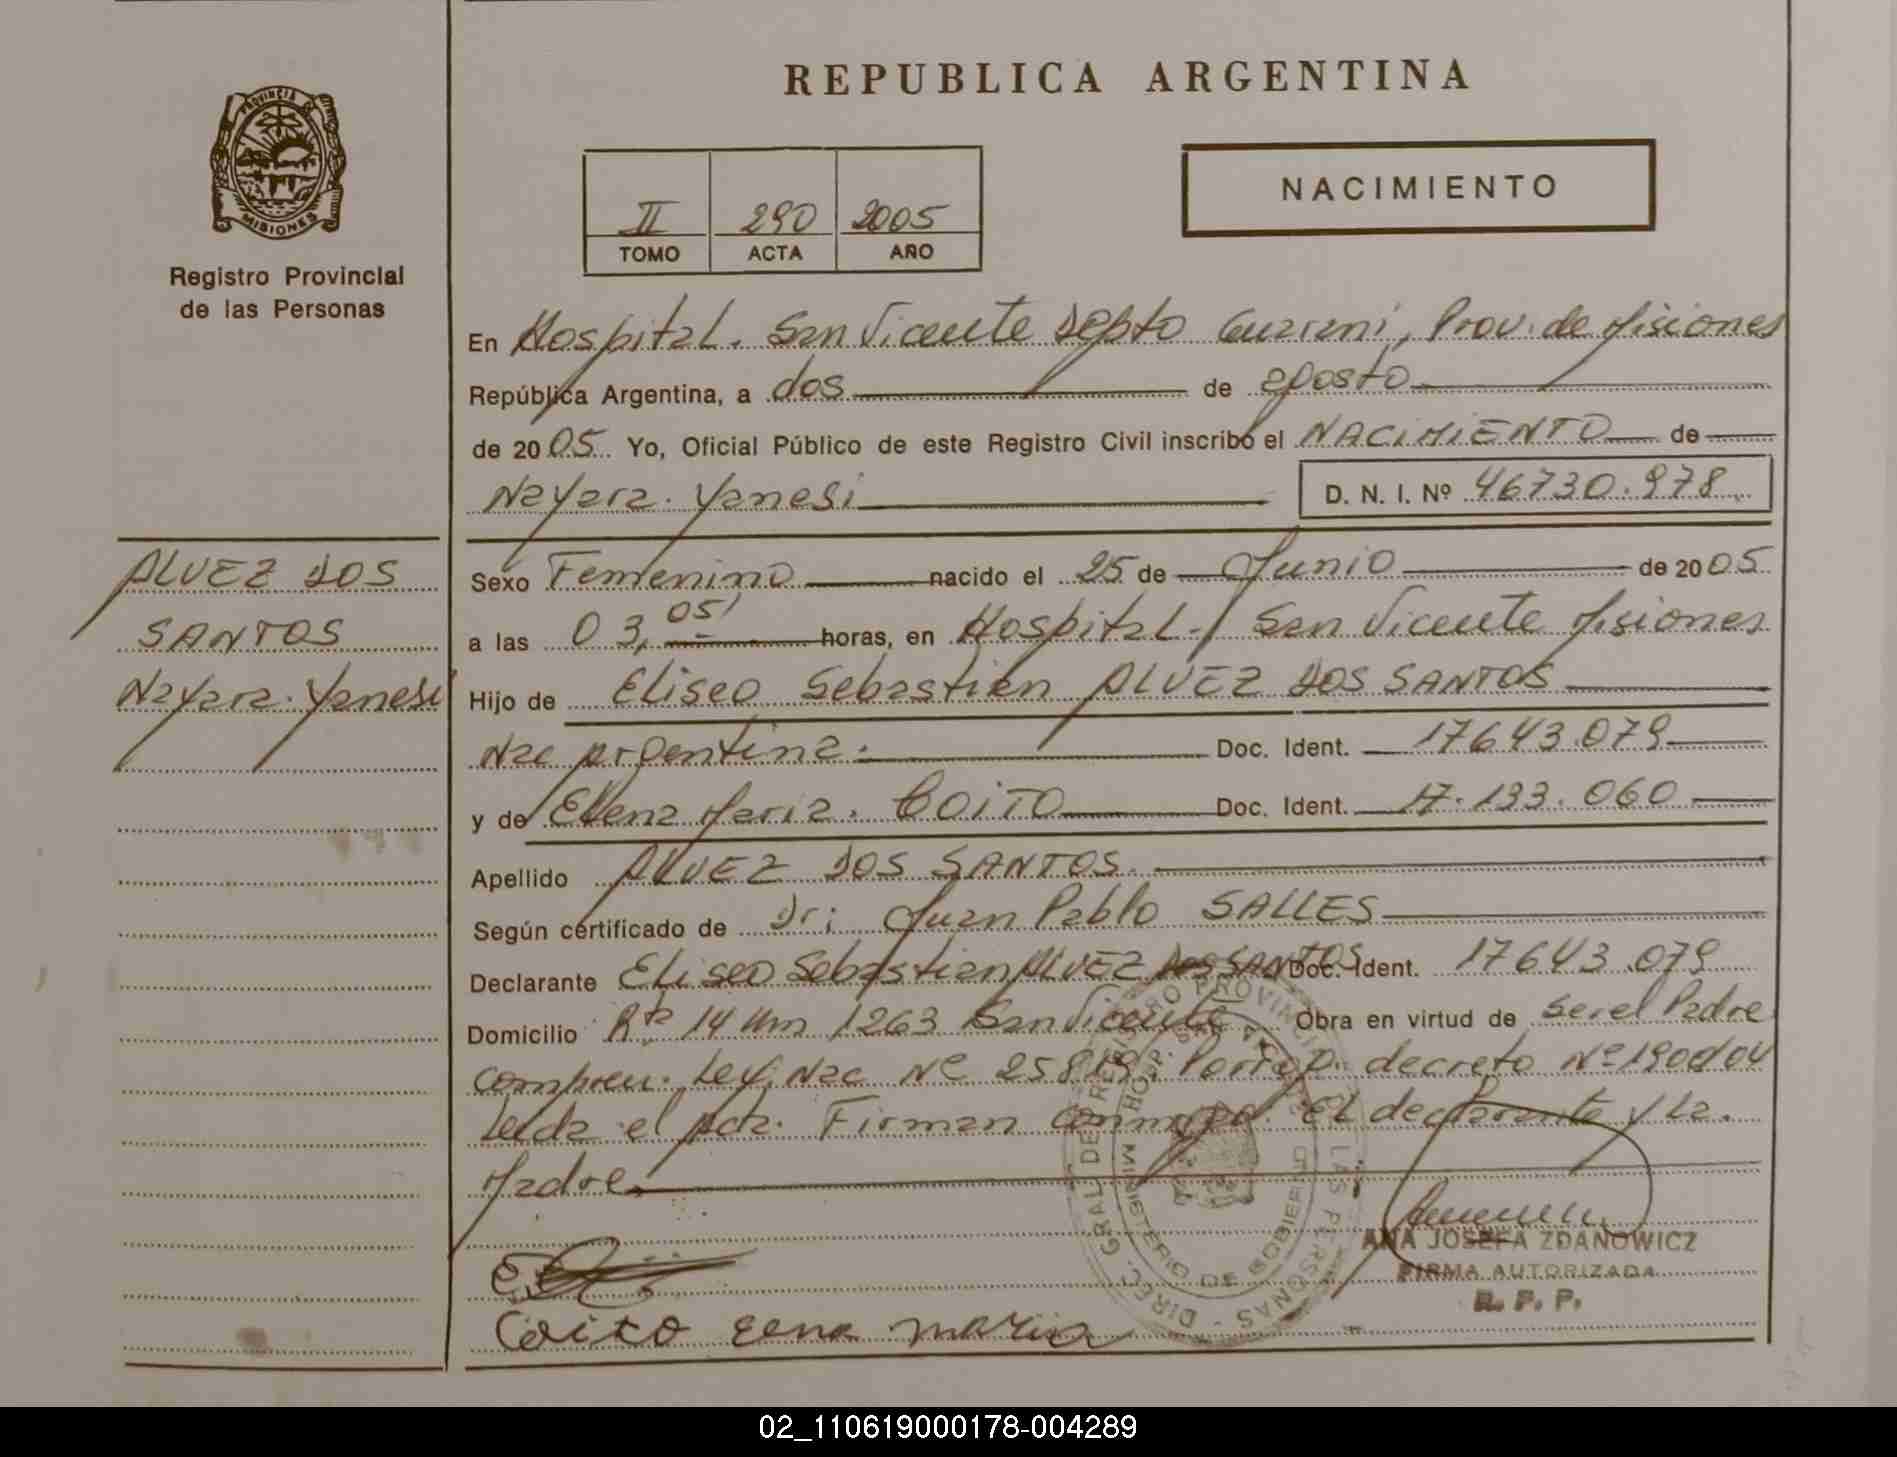 REPUBLICA ARGENTINA
PROVINCIA DE
MISIONES
Registro Provincial
de las Personas
II 290 2005
TOMO ACTA AÑO
NACIMIENTO
En Hospital. San Vicente Depto Guarani, Prov. de Misiones
República Argentina, a dos de agosto
de 2005. Yo, Oficial Público de este Registro Civil inscribo el NACIMIENTO de
Nayara. Yanesi D. N. I. Nº 46730.978
ALVEZ DOS
SANTOS
Nayara. Yanesi
Sexo Femenino nacido el 25 de Junio de 2005
a las 03, 05' horas, en Hospital - San Vicente Misiones
Hijo de Eliseo Sebastian ALVEZ DOS SANTOS
Nac Argentina. Doc. Ident. 17643.079
y de Elena Maria. COITO Doc. Ident. 17.133.060
Apellido ALVEZ DOS SANTOS.
Según certificado de Dr; Juan Pablo SALLES
Declarante Eliseo Sebastian ALVEZ DOS SANTOS Doc. Ident. 17643.079
Domicilio Rta 14 Km 1263 San Vicente Obra en virtud de ser el Padre
Compren. Ley. Nac Nº 25819. Porrap. decreto Nº 190d/04
Leida el Acta. Firman conmigo. El declarante y La.
Madre
DIREC. GRAL DE REGISTRO PROVINCIAL DE LAS PERSONAS
HOSP. SAN VICENTE
MINISTERIO DE GOBIERNO
ANA JOSEFA ZDANOWICZ
FIRMA AUTORIZADA
R. P. P.
Coito elena maria
02_110619000178-004289